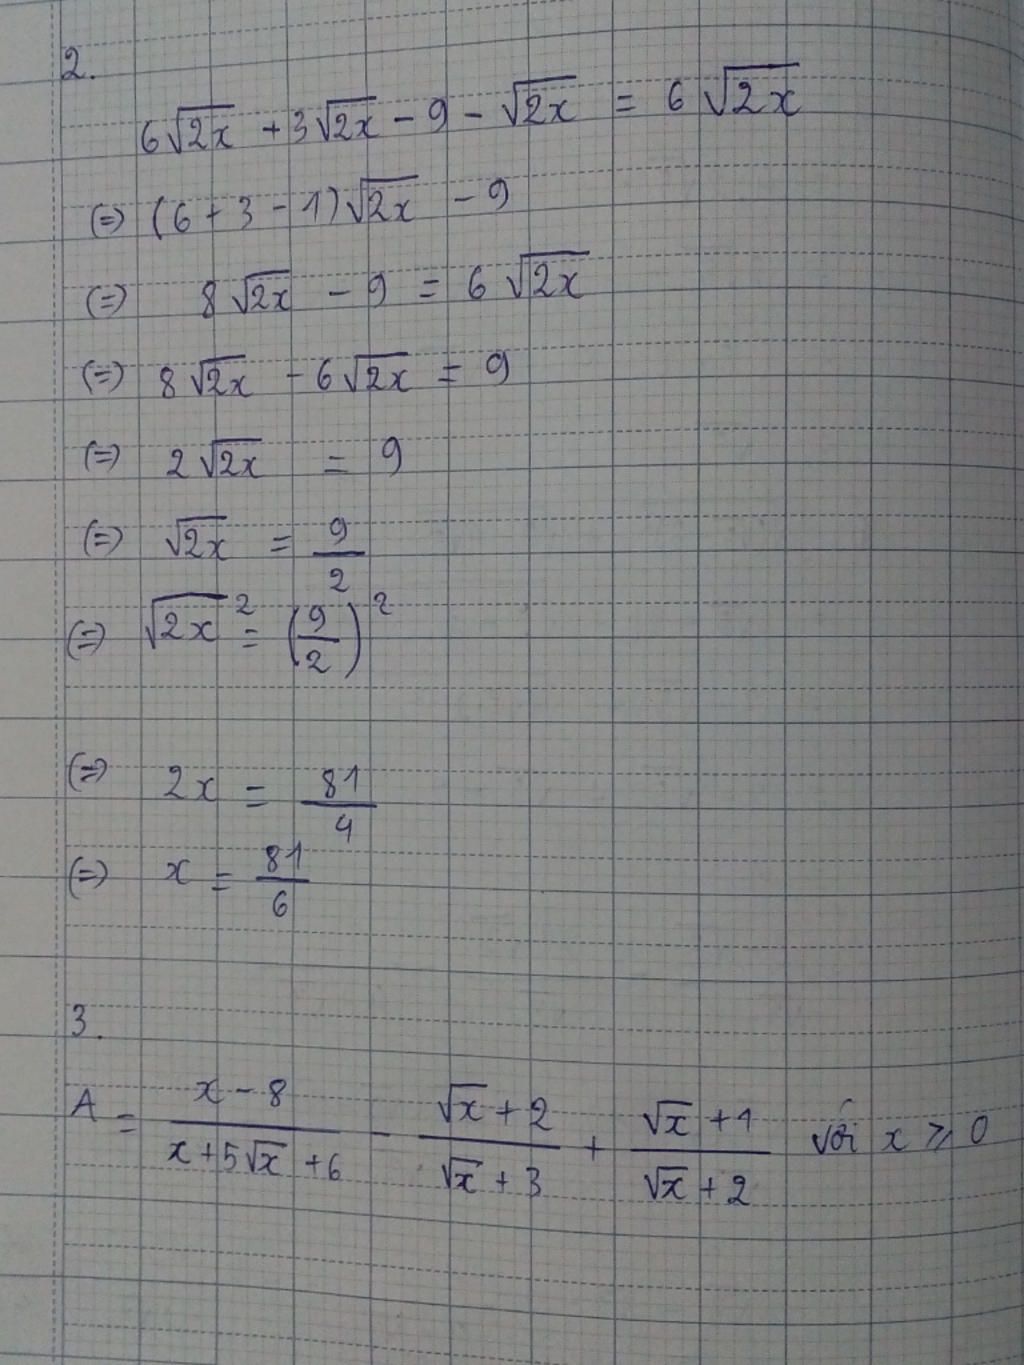 2.
6√2x + 3√2x - 9 - √2x = 6√2x
(=) (6 + 3 - 1)√2x - 9
(=) 8√2x - 9 = 6√2x
(=) 8√2x - 6√2x = 9
(=) 2√2x = 9
(=) √2x = 9/2
(=) √2x² = (9/2)²
(=) 2x = 81/4
(=) x = 81/6
3.
A = (x - 8)/(x + 5√x + 6) - (√x + 2)/(√x + 3) + (√x + 1)/(√x + 2) với x ⩾ 0